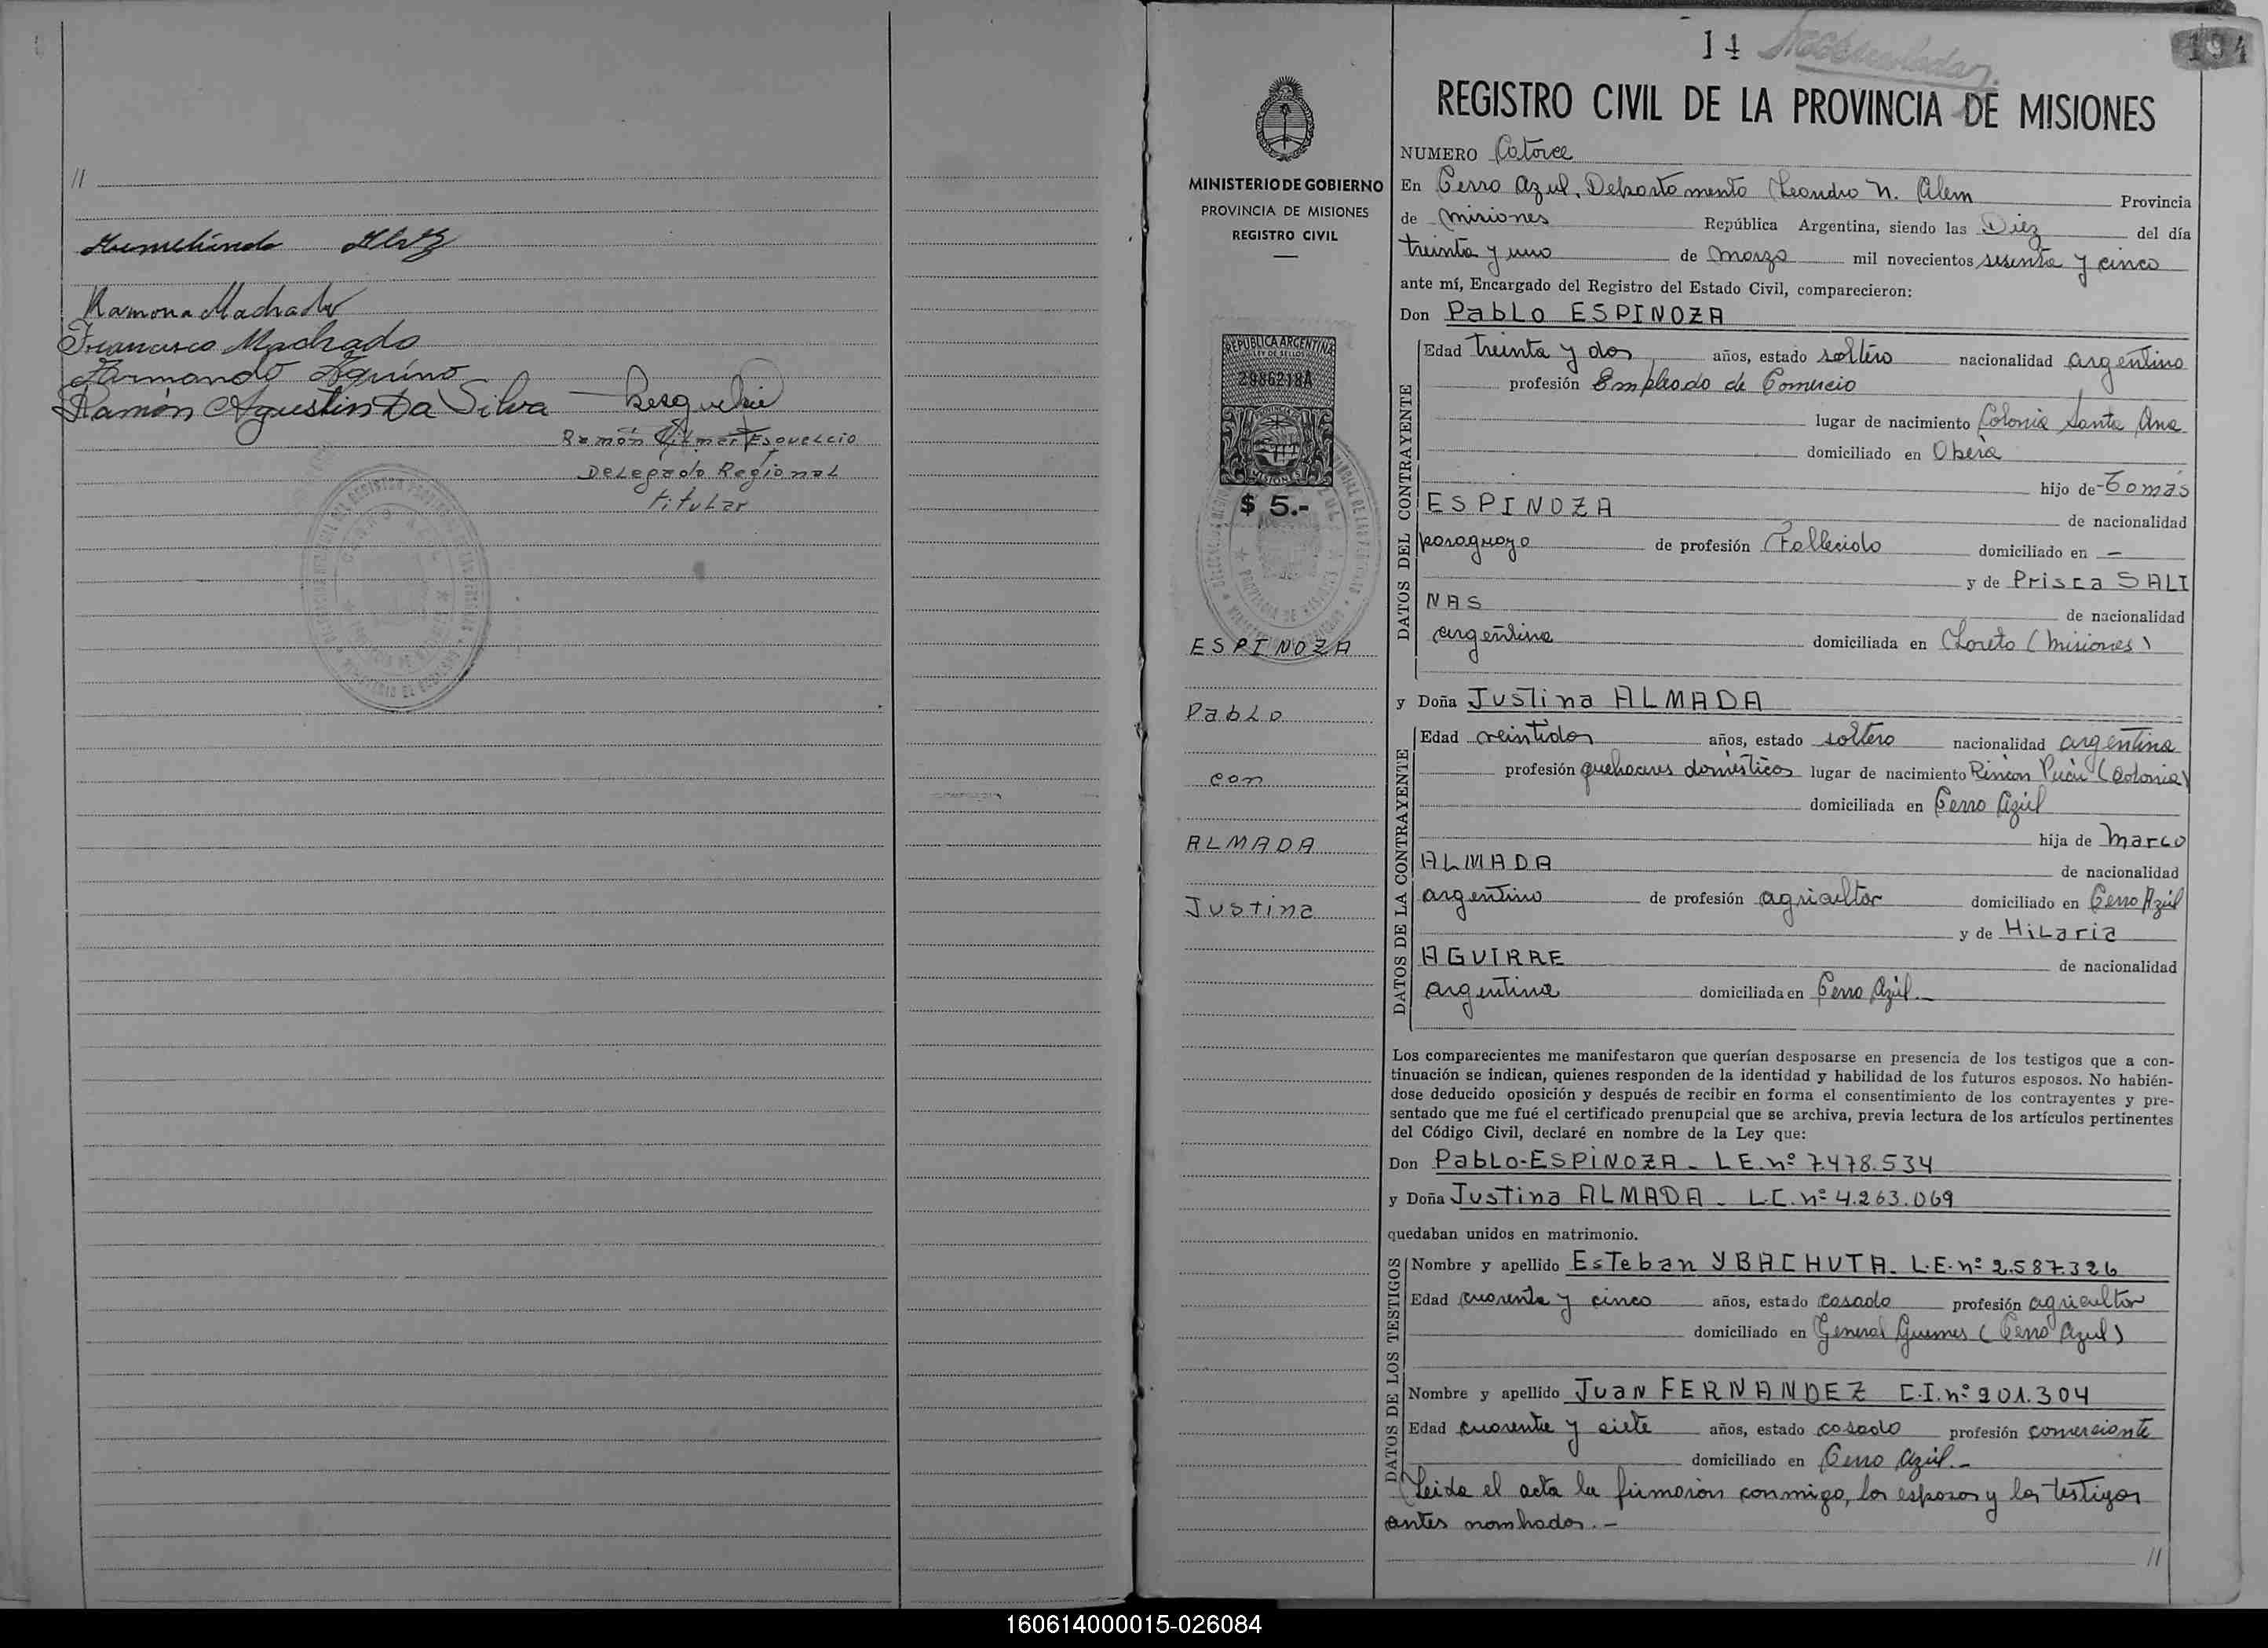 //
Ramona Machado
Francisco Machado
Armando Aquino
Ramón Agustin Da Silva
Ramón Esquelcio
Delegado Regional
titular
14
194
REGISTRO CIVIL DE LA PROVINCIA DE MISIONES
MINISTERIO DE GOBIERNO
PROVINCIA DE MISIONES
REGISTRO CIVIL
REPUBLICA ARGENTINA
LEY DE SELLOS
2986218A
MISIONES
$ 5.-
ESPINOZA
Pablo
con
ALMADA
Justina
NUMERO Catorce
En Cerro Azul, Departamento Leandro N. Alem Provincia
de Misiones República Argentina, siendo las Diez del día
treinta y uno de Marzo mil novecientos sesenta y cinco
ante mí, Encargado del Registro del Estado Civil, comparecieron:
Don Pablo ESPINOZA
DATOS DEL CONTRAYENTE
Edad treinta y dos años, estado soltero nacionalidad argentino
profesión Empleado de Comercio
lugar de nacimiento Colonia Santa Ana
domiciliado en Oberá
hijo de Tomás
ESPINOZA de nacionalidad
paraguayo de profesión Fallecido domiciliado en —
y de Prisca SALI
NAS de nacionalidad
argentina domiciliada en Loreto (Misiones)
y Doña Justina ALMADA
DATOS DE LA CONTRAYENTE
Edad veintidos años, estado soltera nacionalidad argentina
profesión quehaceres domésticos lugar de nacimiento Rincon (Colonia)
domiciliada en Cerro Azúl
hija de Marco
ALMADA de nacionalidad
argentino de profesión agricultor domiciliado en Cerro Azúl
y de Hilaria
AGUIRRE de nacionalidad
argentina domiciliada en Cerro Azúl.-
Los comparecientes me manifestaron que querían desposarse en presencia de los testigos que a con-
tinuación se indican, quienes responden de la identidad y habilidad de los futuros esposos. No habién-
dose deducido oposición y después de recibir en forma el consentimiento de los contrayentes y pre-
sentado que me fué el certificado prenupcial que se archiva, previa lectura de los artículos pertinentes
del Código Civil, declaré en nombre de la Ley que:
Don Pablo-ESPINOZA - L.E. nº 7.478.534
y Doña Justina ALMADA - L.C. nº 4.263.069
quedaban unidos en matrimonio.
DATOS DE LOS TESTIGOS
Nombre y apellido Esteban YBACHUTA. L.E. nº 2.587.326
Edad cuarenta y cinco años, estado casado profesión agricultor
domiciliado en General Guemes (Cerro Azul)
Nombre y apellido Juan FERNANDEZ C.I. nº 201.304
Edad cuarenta y siete años, estado casado profesión comerciante
domiciliado en Cerro Azúl.-
Leida el acta la firmaron conmigo, los esposos y los testigos
antes nombrados.-
//
160614000015-026084